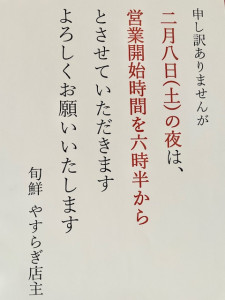 申し訳ありませんが
二月八日(土)の夜は、
営業開始時間を六時半から
とさせていただきます
よろしくお願いいたします
旬鮮 やすらぎ店主